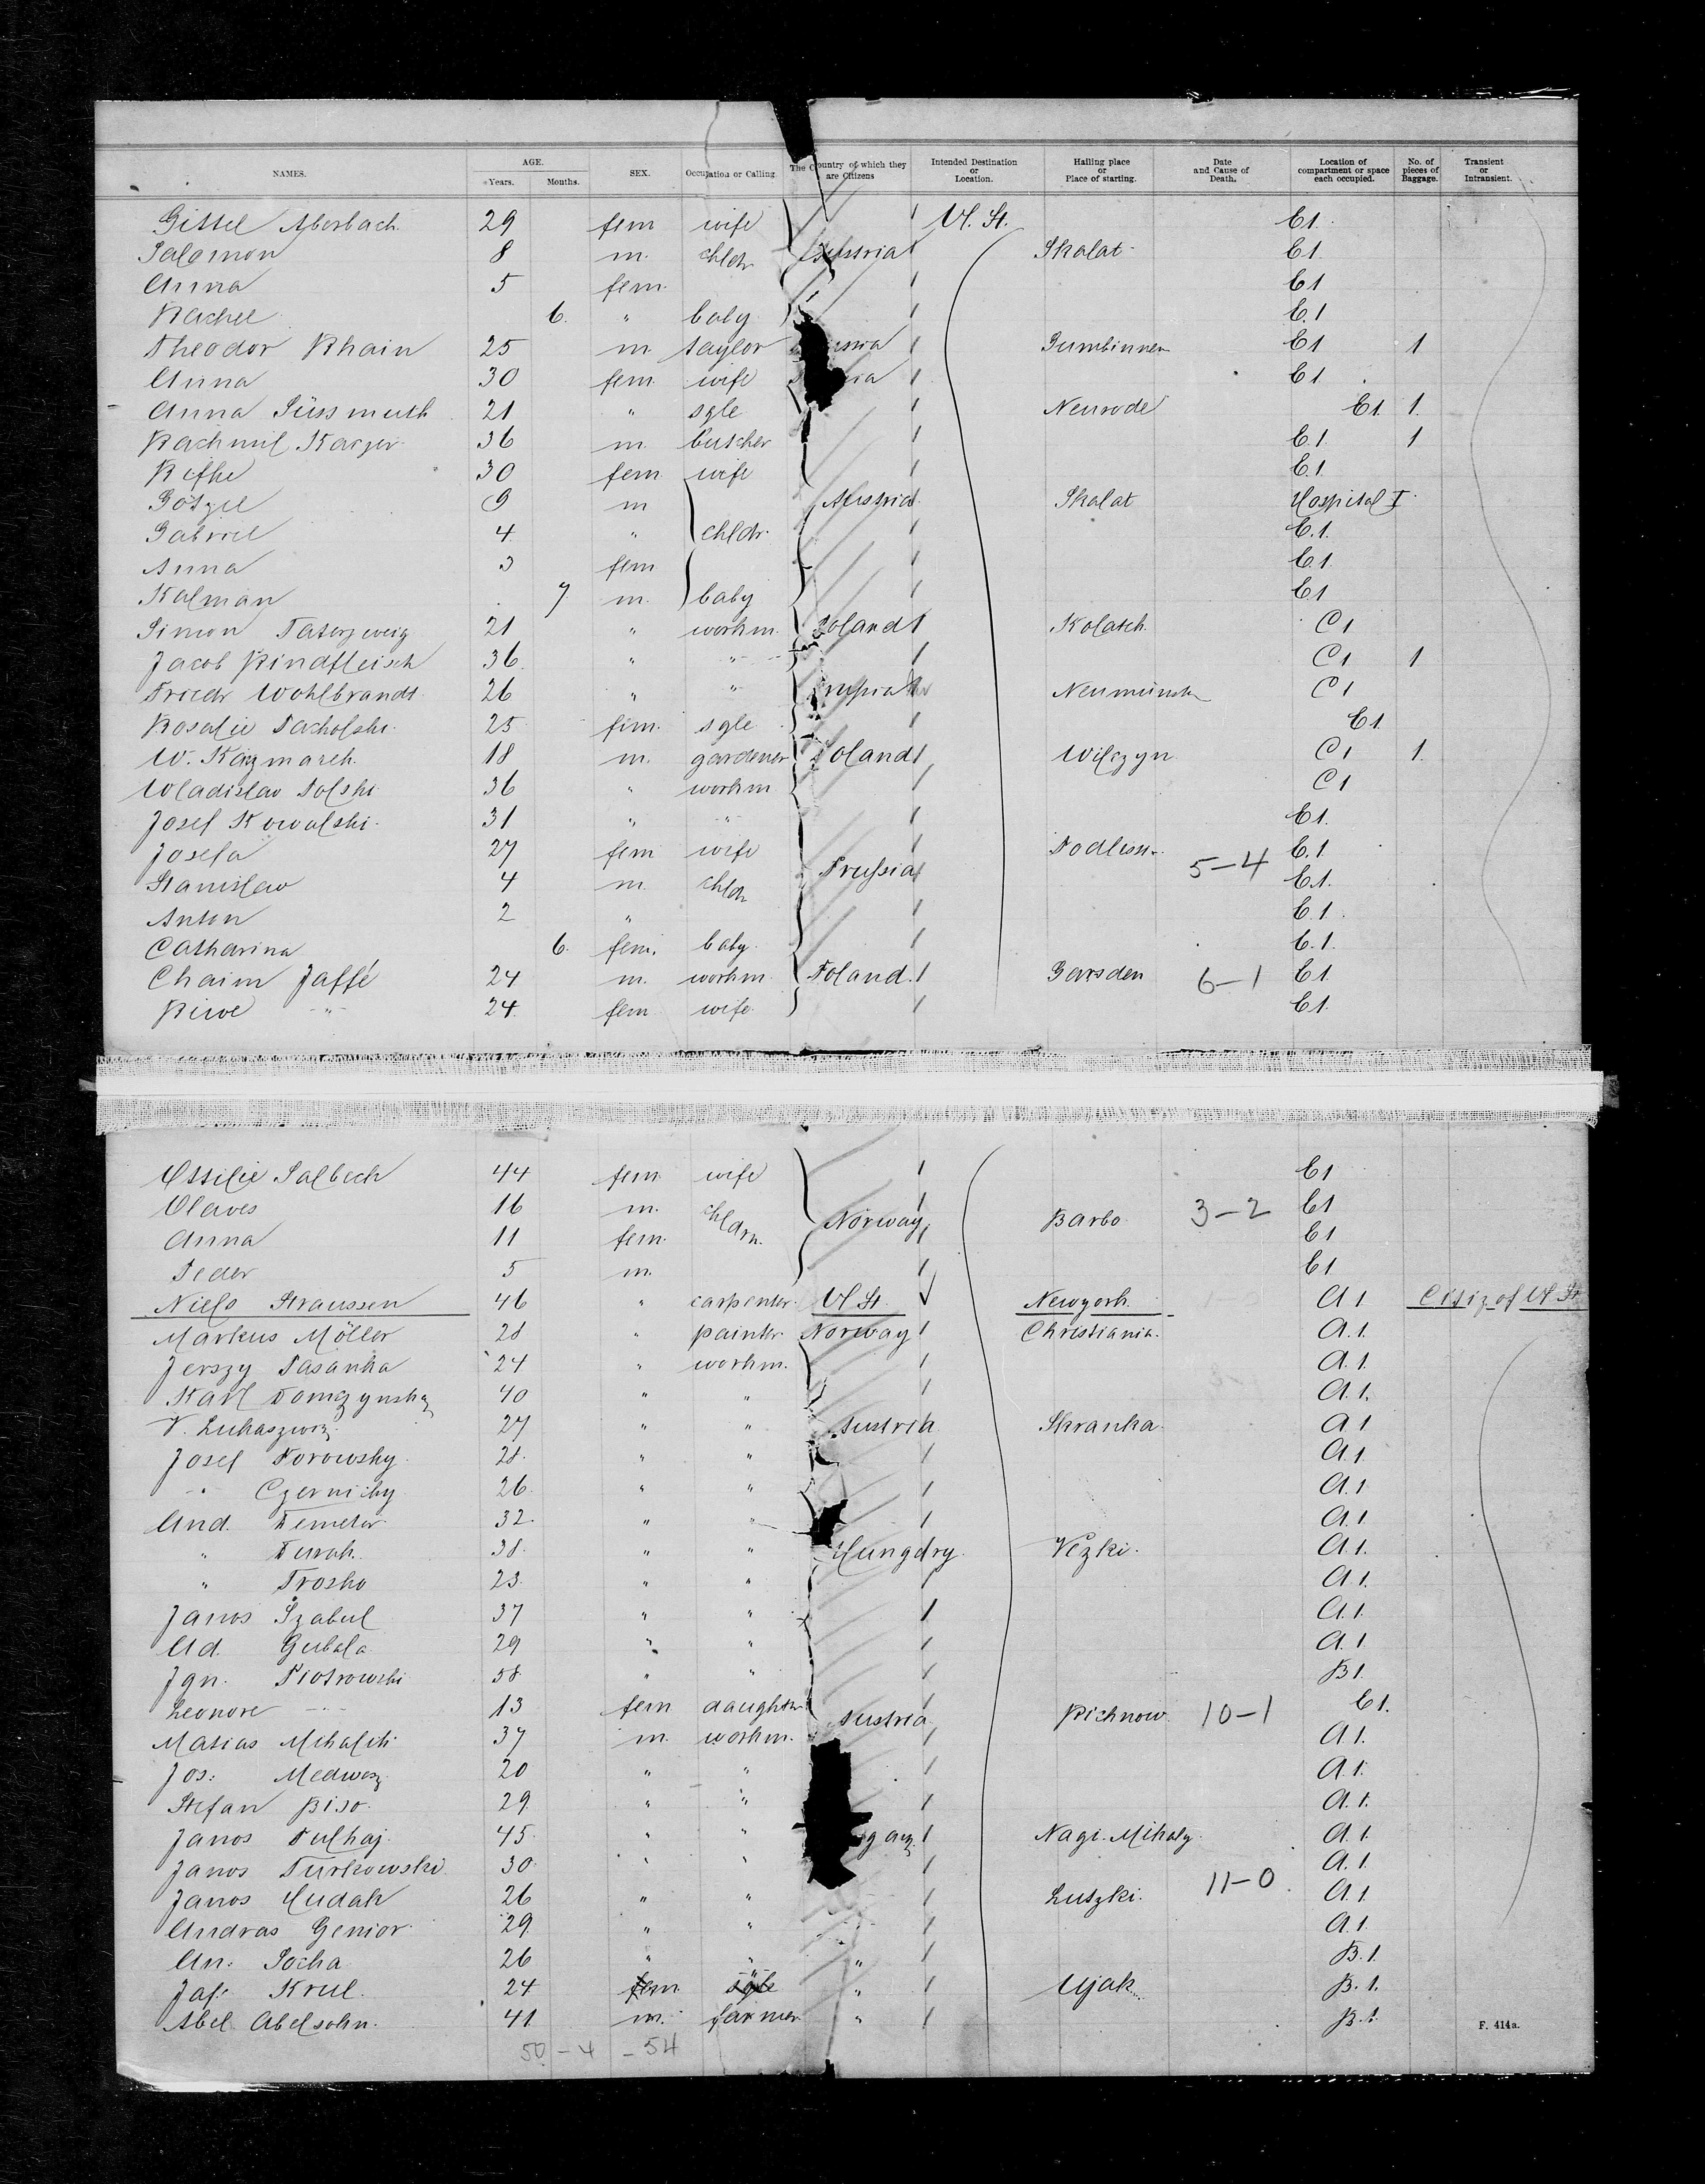 NAMES. AGE. Years. Months. SEX. Occupation or Calling. The Country of which they are Citizens Intended Destination or Location. Hailing place or Place of starting. Date and Cause of Death. Location of compartment or space each occupied. No. of pieces of Baggage. Transient or Intransient.
Gittel Aberbach 29 fem wife U. St. E1.
Salomon 8 m. chldr Austria Skalat E1.
Anna 5 fem. E1
Rachel 6. " baby E.1
Theodor Rhain 25 m. taylor Gumbinnen E1 1
Anna 30 fem. wife E1
Anna Süssmuth 21 " sgle Neurode E1. 1.
Rachmil Karger 36 m. butcher E.1. 1
Rifke 30 fem wife E.1
Götzel 9 m Austria Skalat Hospital I
Gabriel 4 " chldr. E.1.
Anna 3 fem E.1
Kalman 7 m. baby E1
Simon 21 " workm. Poland Kolatch C1
Jacob Rindfleisch 36. " " C1 1
Friedr Wohlbrandt 26 " " Prussia Neumünster C1
Rosalie 25 fem. sgle E1.
W. Kazmarek 18 m. gardener Poland Wilczyn C1 1.
Wladislav Polski 36 " workm C1
Josef Kowalski 31 " " E1.
Josefa 27 fem wife E.1
Stanislaw 4 m. chldr Prussia 5-4 E.1.
Anton 2 " E.1.
Catharina 6. fem. baby E.1.
Chaim Jaffé 24 m. workm. Poland. Garsden 6-1 E1.
Riwe " 24. fem wife. E1.
Ottilie Salbech 44 fem. wife E1
Olaves 16 m. chldrn. Norway Barbo 3-2 E1
Anna 11 fem. E1
Peder 5 m. E1
Niels Straussen 46 " carpenter U St. Newyork. A1 Citiz of U St
Markus Möller 28 " painter Norway Christiania. A.1.
Jerszy Pasanka 24 " workm. A.1.
Karl Domczynsky 40 " " A.1.
V. 27 " " Austria Skranka A1
Josef Porowsky 28. " " A.1
" 26 " " A.1
And. Demeter 32. " " A1
" 38. " " Hungary. Vezki. A.1.
" Trosko 23. " " A1.
Janos Szabul 37 " " A.1
Ad. Gubala 29 " " A.1
Ign. Piotrowski 58 " " B1.
Leonore " 13 fem daughter Austria Pichnow 10-1 E1.
Matias 37 m. workm. A.1.
Jos: 20 " " A.1.
Stefan Biso. 29. " " A.1.
Janos Pulhaj 45. " " Nagi-Mihaly A.1.
Janos Turkowski 30. " " A.1.
Janos Hudak 26 " " Lutzki. 11-0 A.1
Andras Genior 29. " " A.1
An: Socha 26 " " " B.1.
Jaf: Krul. 24 fem sgle " Ujak B.1.
Abel Abelsohn. 41. m. farmer " B.1.
50-4-54
F. 414a.